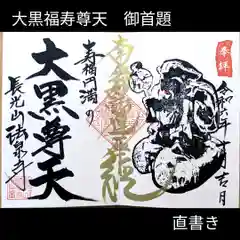 大黒福寿尊天　御首題
奉拝
令和六年十一月吉日
寿福円満の
大黒尊天
長光山法泉寺
直書き